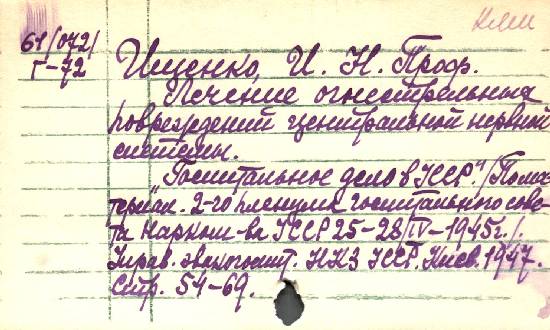 61/072/
Г-72
Ищенко, И. Н. Проф.
Лечение огнестрельных
повреждений центральной нервной
системы.
"Госпитальное дело в УССР"/По ма-
териал. 2-го пленума госпитального сове-
та Наркомзд-ва УССР 25-28/IV-1945г./.
Управ. эвакогоспит. НКЗ УССР. Киев. 1947.
Стр. 54-69.